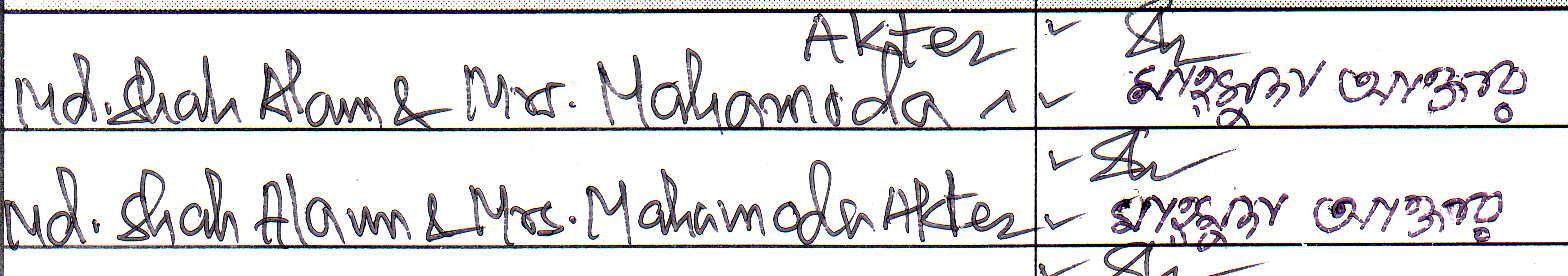 Akter
Md. Shah Alam & Mrs. Mahamoda ^
মাহমুদা আক্তার
Md. Shah Alam & Mrs. Mahamoda Akter
মাহমুদা আক্তার